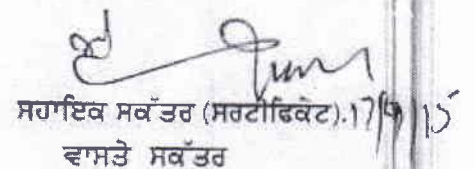 ਸਹਾਇਕ ਸਕੱਤਰ (ਸਰਟੀਫਿਕੇਟ).
ਵਾਸਤੇ ਸਕੱਤਰ